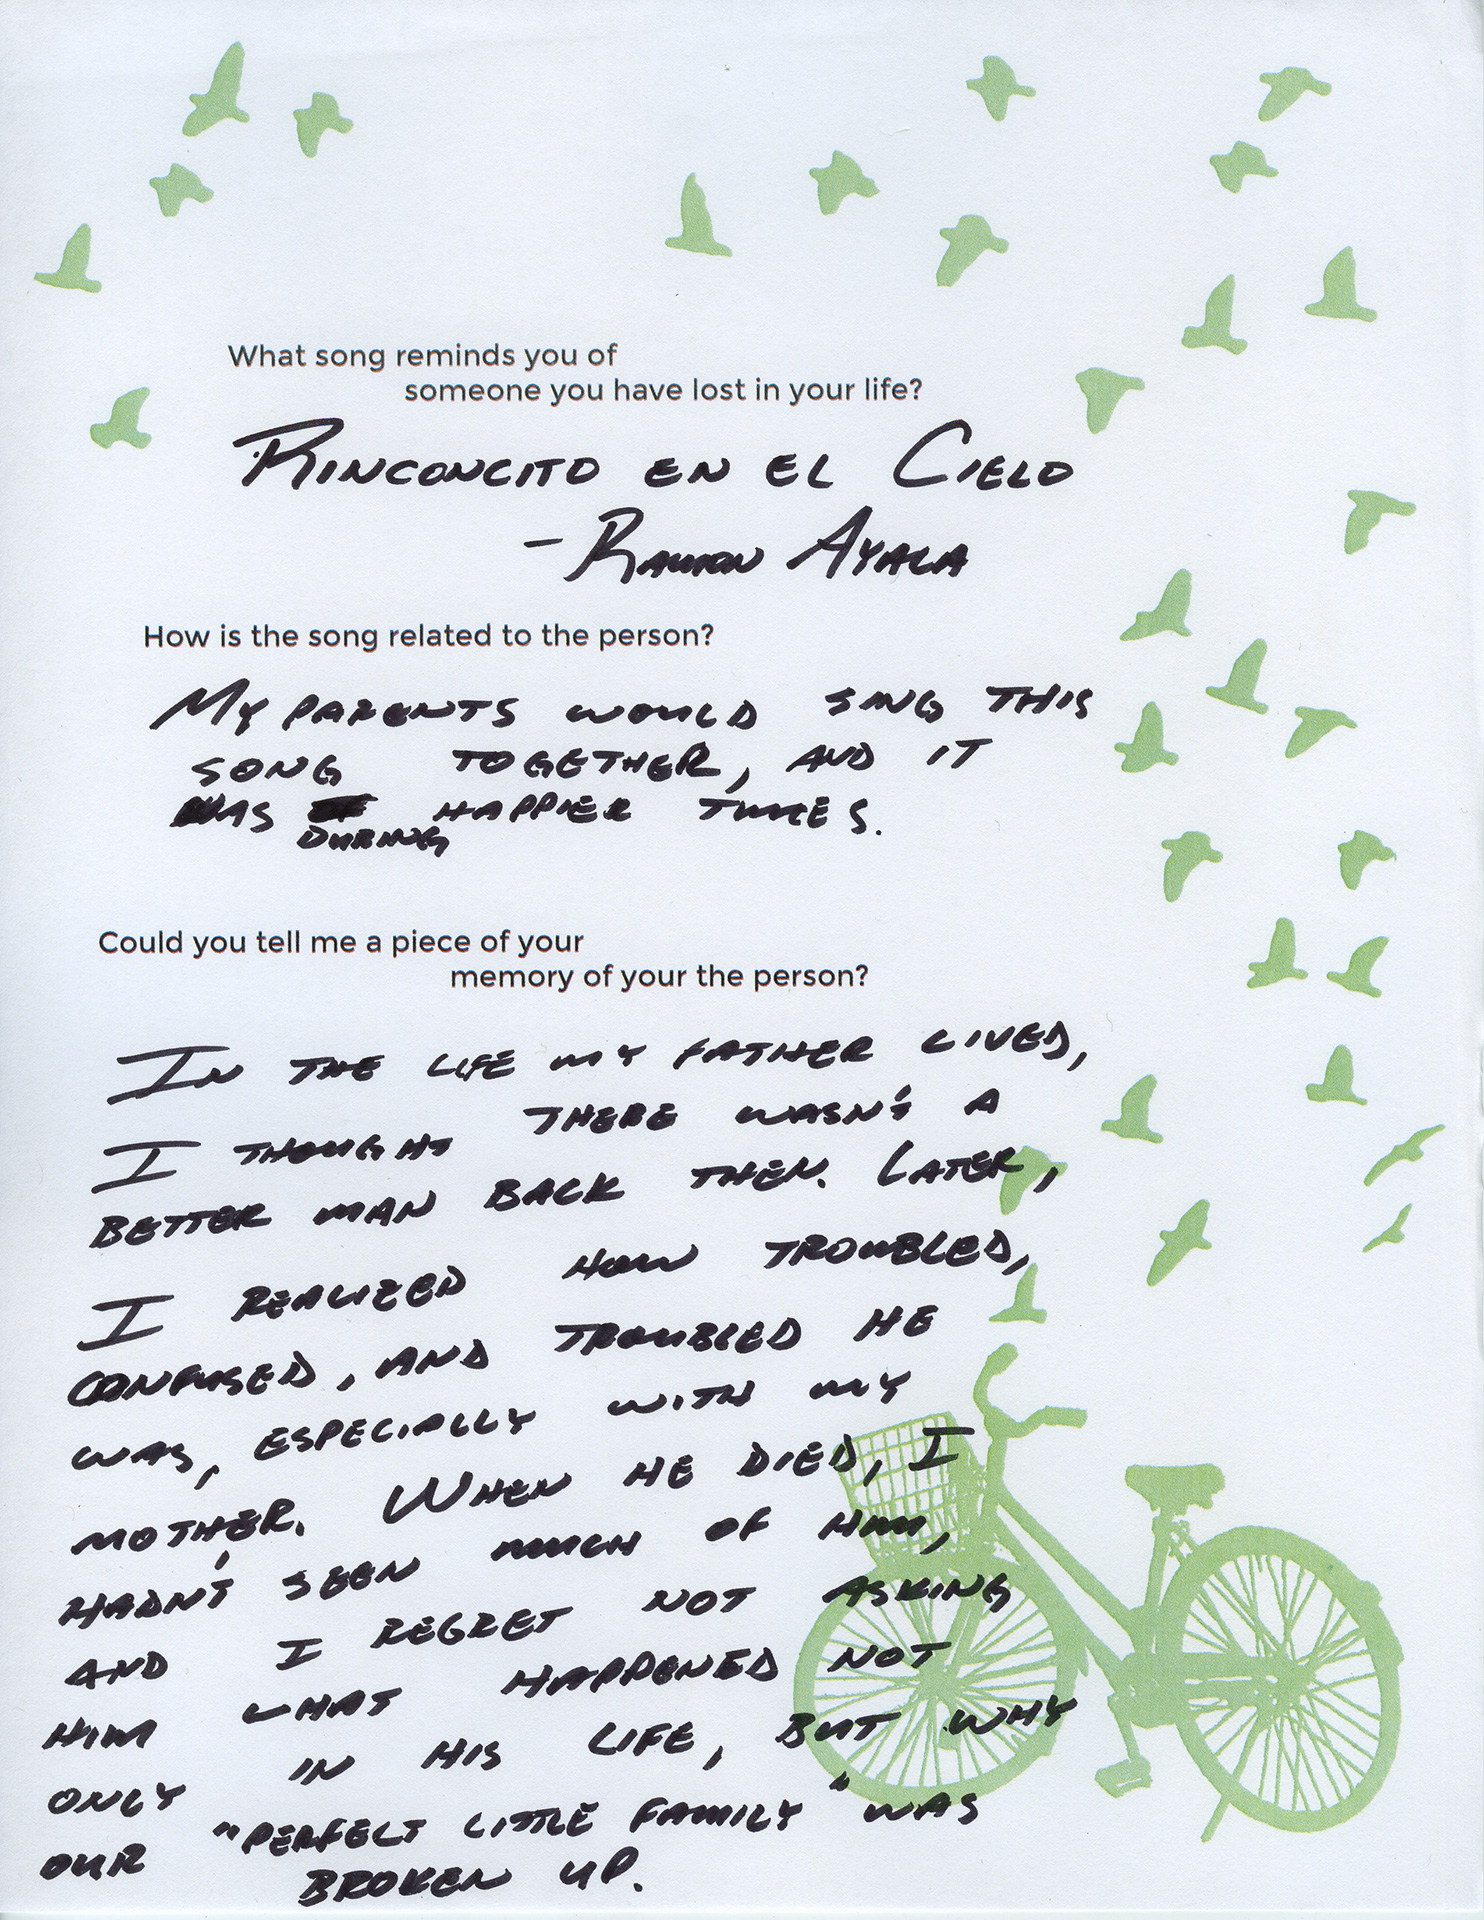 What song reminds you of
someone you have lost in your life?
RINCONCITO EN EL CIELO
- RAMON AYALA
How is the song related to the person?
MY PARENTS WOULD SING THIS
SONG TOGETHER, AND IT
WAS DURING HAPPIER TIMES.
Could you tell me a piece of your
memory of your the person?
IN THE LIFE MY FATHER LIVED,
I THOUGHT THERE WASN'T A
BETTER MAN BACK THEN. LATER,
I REALIZED HOW TROUBLED,
CONFUSED, AND TROUBLED HE
WAS, ESPECIALLY WITH MY
MOTHER. WHEN HE DIED, I
HADN'T SEEN MUCH OF HIM,
AND I REGRET NOT ASKING
HIM WHAT HAPPENED NOT
ONLY IN HIS LIFE, BUT WHY
OUR "PERFECT LITTLE FAMILY" WAS
BROKEN UP.